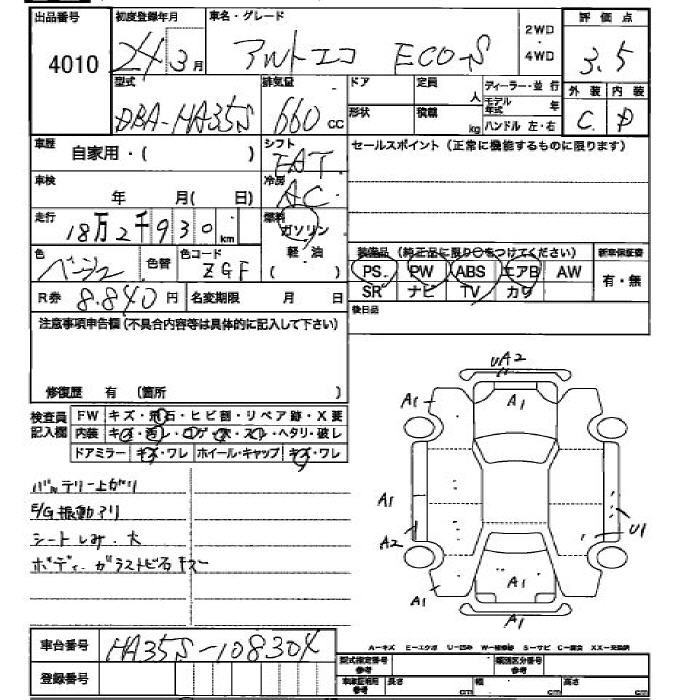 出品番号 初度登録年月 車名・グレード 2WD・4WD 評価点
4010 24年 3月 アルトエコ ECO-S 3.5
型式 排気量 ドア 定員 人 ディーラー・並行 外装 内装
DBA-HA35S 660cc 形状 積載 kg モデル年式 年 C D
ハンドル 左・右
車歴 自家用・( ) シフト FAT セールスポイント(正常に機能するものに限ります)
車検 年 月( 日) 冷房 AC
走行 18万2千930km 燃料 ガソリン
軽・油
( )
色 ベージュ 色替 色コード ZGF
装備品(純正品に限り○をつけてください) 新車保証書
PS. PW ABS エアB AW 有・無
SR ナビ TV カワ
R券 8.840円 名変期限 月 日 後日品
注意事項申告欄(不具合内容等は具体的に記入して下さい)
修復歴 有 (箇所 )
検査員記入欄 FW キズ・飛石・ヒビ割・リペア跡・X要
内装 キズ・汚レ・コゲ・穴・スレ・ヘタリ・破レ
ドアミラー キズ・ワレ ホイール・キャップ キズ・ワレ
バッテリー上がり
E/G振動アリ
シートしみ.大
ボディ.ガラストビ石キズ
UA2
A1 A1
A1
A2 U1
A1
A1 A1
車台番号 HA35S-10830
登録番号
A-キズ E-エクボ U-凹み W-補修跡 S-サビ C-腐食 XX-交換済
型式指定番号 参考 類別区分番号 参考
車体証明用 参考 長さ cm 幅 cm 高さ cm